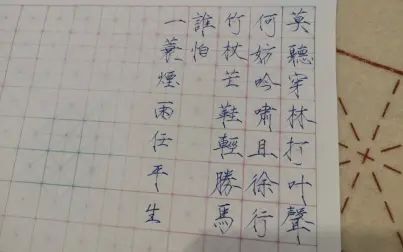 莫聽穿林打叶聲
何妨吟嘯且徐行
竹杖芒鞋輕勝馬
誰怕
一蓑煙雨任平生